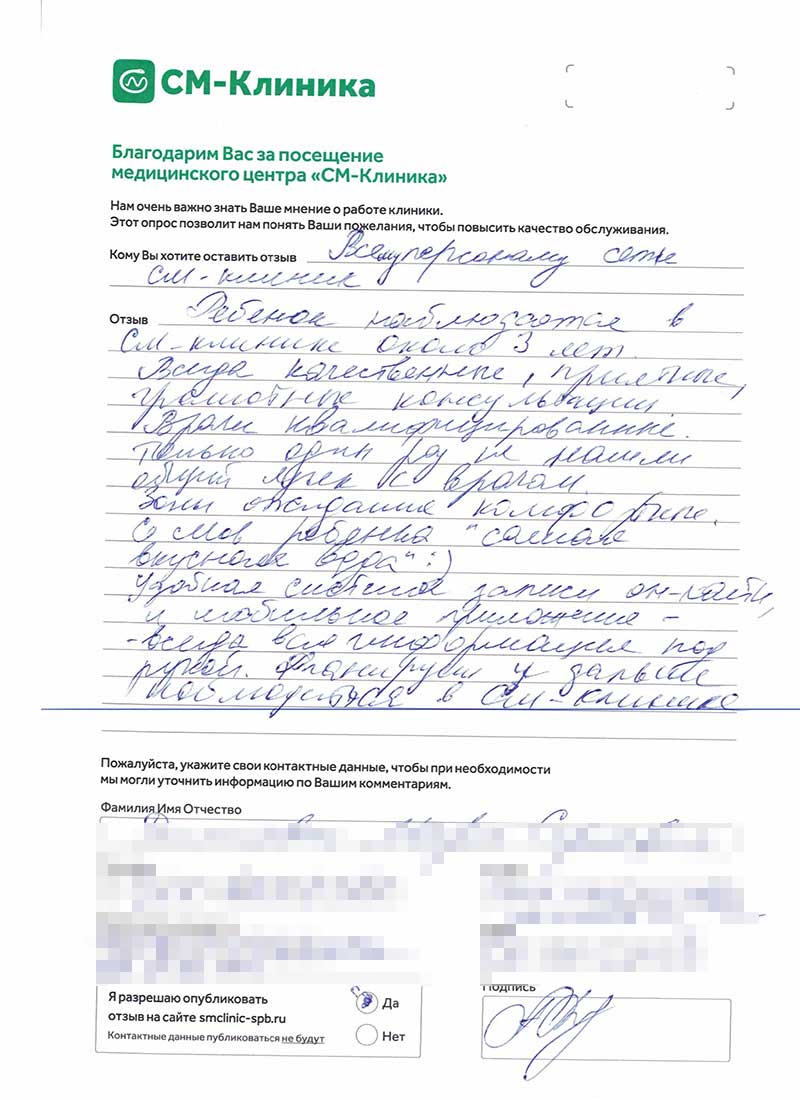 СМ-Клиника
Благодарим Вас за посещение
медицинского центра «СМ-Клиника»
Нам очень важно знать Ваше мнение о работе клиники.
Этот опрос позволит нам понять Ваши пожелания, чтобы повысить качество обслуживания.
Кому Вы хотите оставить отзыв Всему персоналу сети
СМ-клиник
Отзыв Ребенок наблюдается в
СМ-клинике около 3 лет.
Всегда качественные, приятные,
грамотные консультации.
Врачи квалифицированные.
Только один раз не нашли
общий язык с врачом.
Зоны ожидания комфортные.
Со слов ребенка "самая
вкусная вода" :)
Удобная система записи он-лайн,
и мобильное приложение -
- всегда вся информация под
рукой. Планируем и дальше
наблюдаться в СМ-клинике
Пожалуйста, укажите свои контактные данные, чтобы при необходимости
мы могли уточнить информацию по Вашим комментариям.
Фамилия Имя Отчество
Я разрешаю опубликовать
отзыв на сайте smclinic-spb.ru
Контактные данные публиковаться не будут
Да
Нет
Подпись